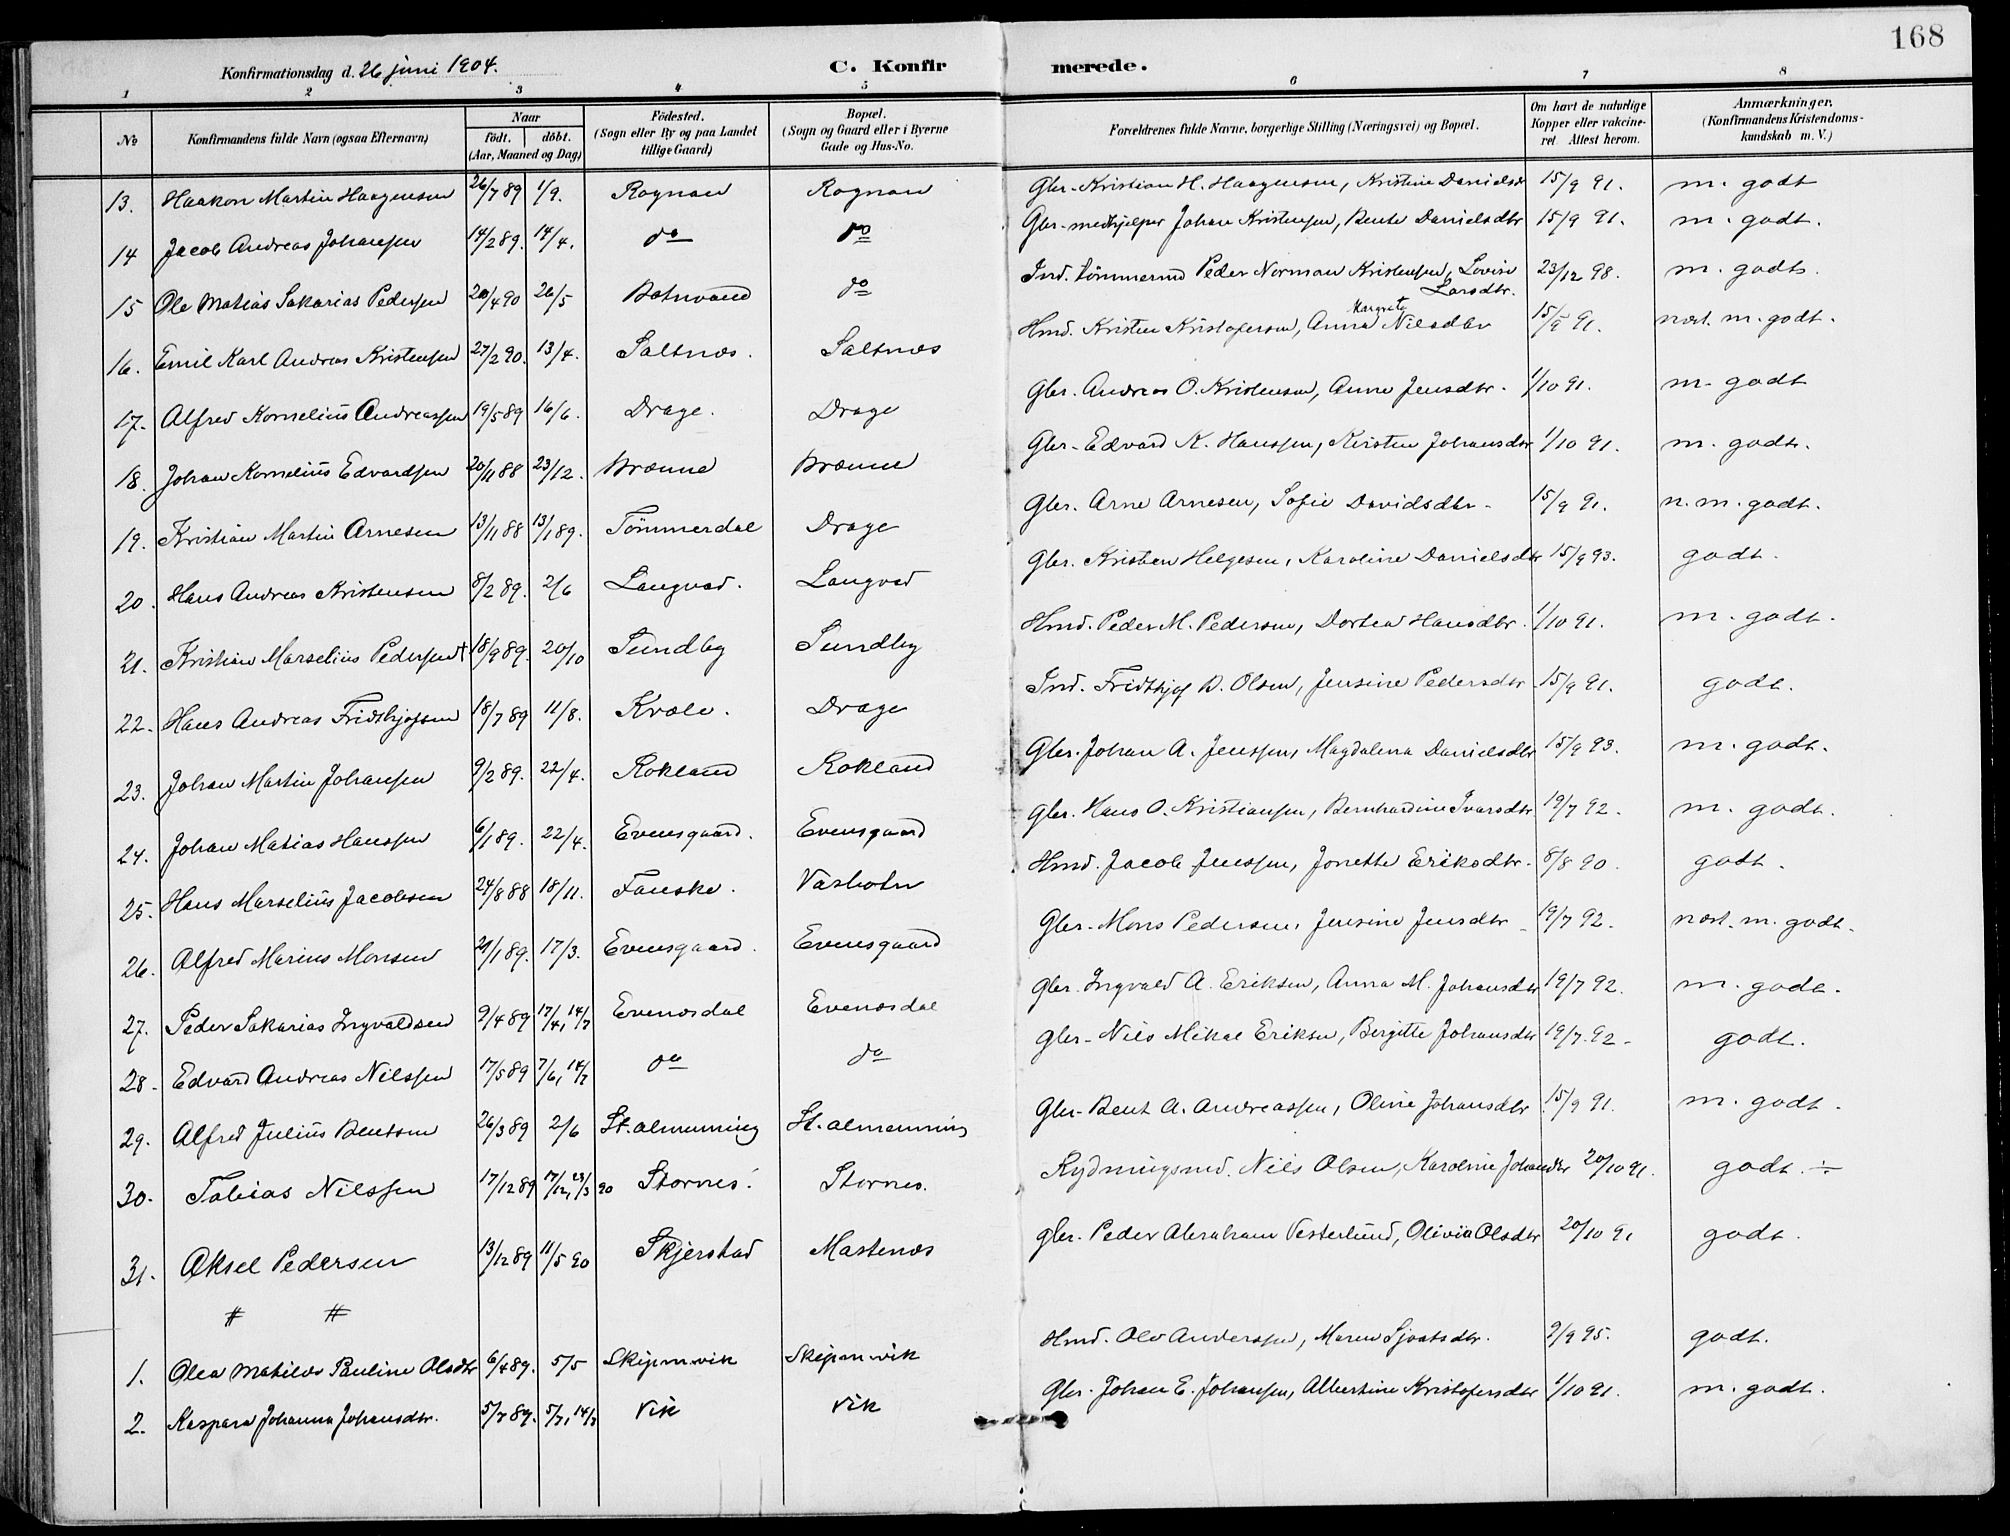 168
Konfirmationsdag d. 26 juni 1904. C. Konfirmerede.
1 2 3 4 5 6 7 8
No Konfirmandens fulde Navn (ogsaa Efternavn) Naar født. døbt. (Aar, Maaned og Dag) Fødested. (Sogn eller By og paa Landet tillige Gaard) Bopæl. (Sogn og Gaard eller i Byerne Gade og Hus-No. Forældrenes fulde Navne, borgerlige Stilling (Næringsvei) og Bopæl. Om havt de naturlige Kopper eller vakcineret Attest herom. Anmærkninger, (Konfirmandens Kristendomskundskab m. V.)
13. Haakon Martin Haagensen 26/7 89 1/9. Rognan Rognan Gbr. Kristian H. Haagensen, Kristine Danielsdr 15/9 91. m. godt
14 Jacob Andreas Johansen 14/2 89. 14/4. do do Gbr-medhjelper Johan Kristensen, Bente Danielsdtr 15/9 91. m. godt.
15 Ole Matias Sakarias Pedersen 20/4 90 26/5 Botnvand do Ind. tømmermd Peder Norman Kristensen, Lovise Larsdtr. 23/12 98. m. godt.
16. Emil Karl Andreas Kristensen 27/2 90. 13/4. Saltnes. Saltnes Hmd. Kristen Kristofersen, Anna Margreta Nilsdtr 15/9 91. næst. m. godt.
17. Alfred Kornelius Andreassen 19/5 89 16/6. Drage. Drage Gbr. Andreas O. Kristensen, Anne Jensdtr. 1/10 91. m. godt
18. Johan Kornelius Edvardsen 20/11 88 23/12. Brænne Brænne Gbr. Edvard K. Hanssen, Kirsten Johansdtr 1/10 91. m. godt.
19. Kristian Martin Arnesen 13/11 88 13/1 89. Tømmerdal Drage Gbr. Arne Arnesen, Sofie Davidsdtr. 15/9 91. n. m. godt.
20. Hans Andreas Kristensen 8/2 89. 2/6 Langvad. Langvad Gbr. Kristen Helgesen, Karoline Danielsdtr 15/9 93. godt.
21. Kristian Marselius Pedersen 18/9 89. 20/10 Sundby Sundby Hmd. Peder M. Pedersen, Dortea Hansdtr. 1/10 91. m. godt.
22. Hans Andreas Fridthjofsen 18/7 89 11/8. Kvæle. Drage Ind. Fridthjof B. Olsen, Jensine Pedersdtr 15/9 91. godt.
23. Johan Martin Johansen 9/2 89. 22/4. Rokland Rokland Gbr. Johan A. Jenssen, Magdalena Danielsdtr 15/9 93. m. godt.
24. Johan Matias Hanssen 6/1 89. 22/4. Evensgaard. Evensgaard Gbr. Hans O. Kristiansen, Bernhardine Ivarsdtr 19/7 92. m. godt.
25. Hans Marselius Jacobsen 24/8 88 18/11. Fauske. Vasbotn Hmd. Jacob Jenssen, Jonette Eriksdtr. 8/8 90. godt.
26. Alfred Marius Monsen 29/1 89. 17/3. Evensgaard. Evensgaard Gbr. Mons Pedersen, Jensine Jensdtr 19/7 92. næst. m. godt.
27. Peder Sakarias Ingvaldsen 9/4 89 17/4, 14/7 Evenesdal Evenesdal Gbr. Ingvald A. Eriksen, Anna M. Johansdtr 19/7 92. m. godt.
28. Edvard Andreas Nilssen 17/5 89 7/6, 14/7 do do Gbr. Nils Mikal Eriksen, Birgitte Johansdtr 19/7 92. godt.
29. Alfred Julius Bentsen 26/3 89 2/6 St. almenning St. almenning Gbr. Bent A. Andreassen, Oline Johansdtr 15/9 91. m. godt.
30. Tobias Nilssen 17/12 89 17/12, 23/3 90 Stornes. Stornes. Rydningsmd. Nils Olsen, Karoline Johansdtr 20/10 91. godt. ÷
31. Aksel Pedersen 13/12 89 11/5 90 Skjerstad Mastenes gbr. Peder Abraham Vesterlund, Olivia Olsdtr 20/10 91 godt.
# #
1. Olea Matilde Pauline Olsdtr 6/4 89. 5/5 Skjevik Skjevik Hmd. Ole Andersen, Maren Sjvatsdtr. 9/9 95. godt.
2. Kaspara Johanna Johansdtr. 5/7 89. 5/7, 14/7 Vik Vik Gbr. Johan E. Johansen, Albertine Kristofersdtr 1/10 91. m. godt.